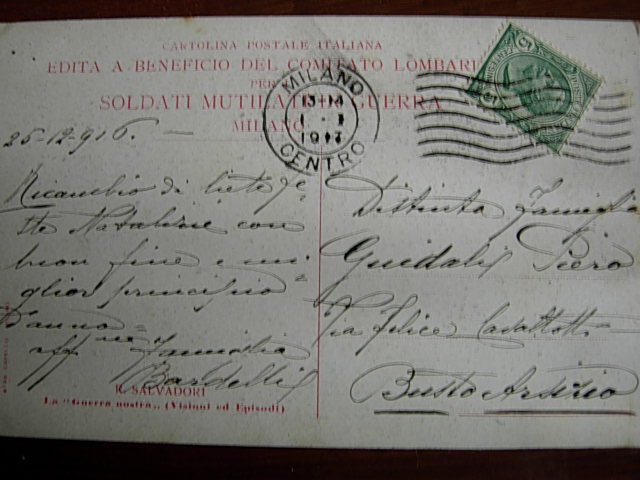 CARTOLINA POSTALE ITALIANA
EDITA A BENEFICIO DEL COMITATO LOMBAR
PER
SOLDATI MUTILATI IN GUERRA
MILANO
MILANO
13-14
1 - 1
1917
CENTRO
25-12-916. —
Ricambio di liete fe-
ste Natalizie con
buon fine e mi-
glior principio
d'anno
aff Famiglia
Bardelli
R. SALVADORI
La "Guerra nostra" (Visioni ed Episodi)
Distinta Famiglia
Piero
Via Felice Cavallotti
Busto Arsizio